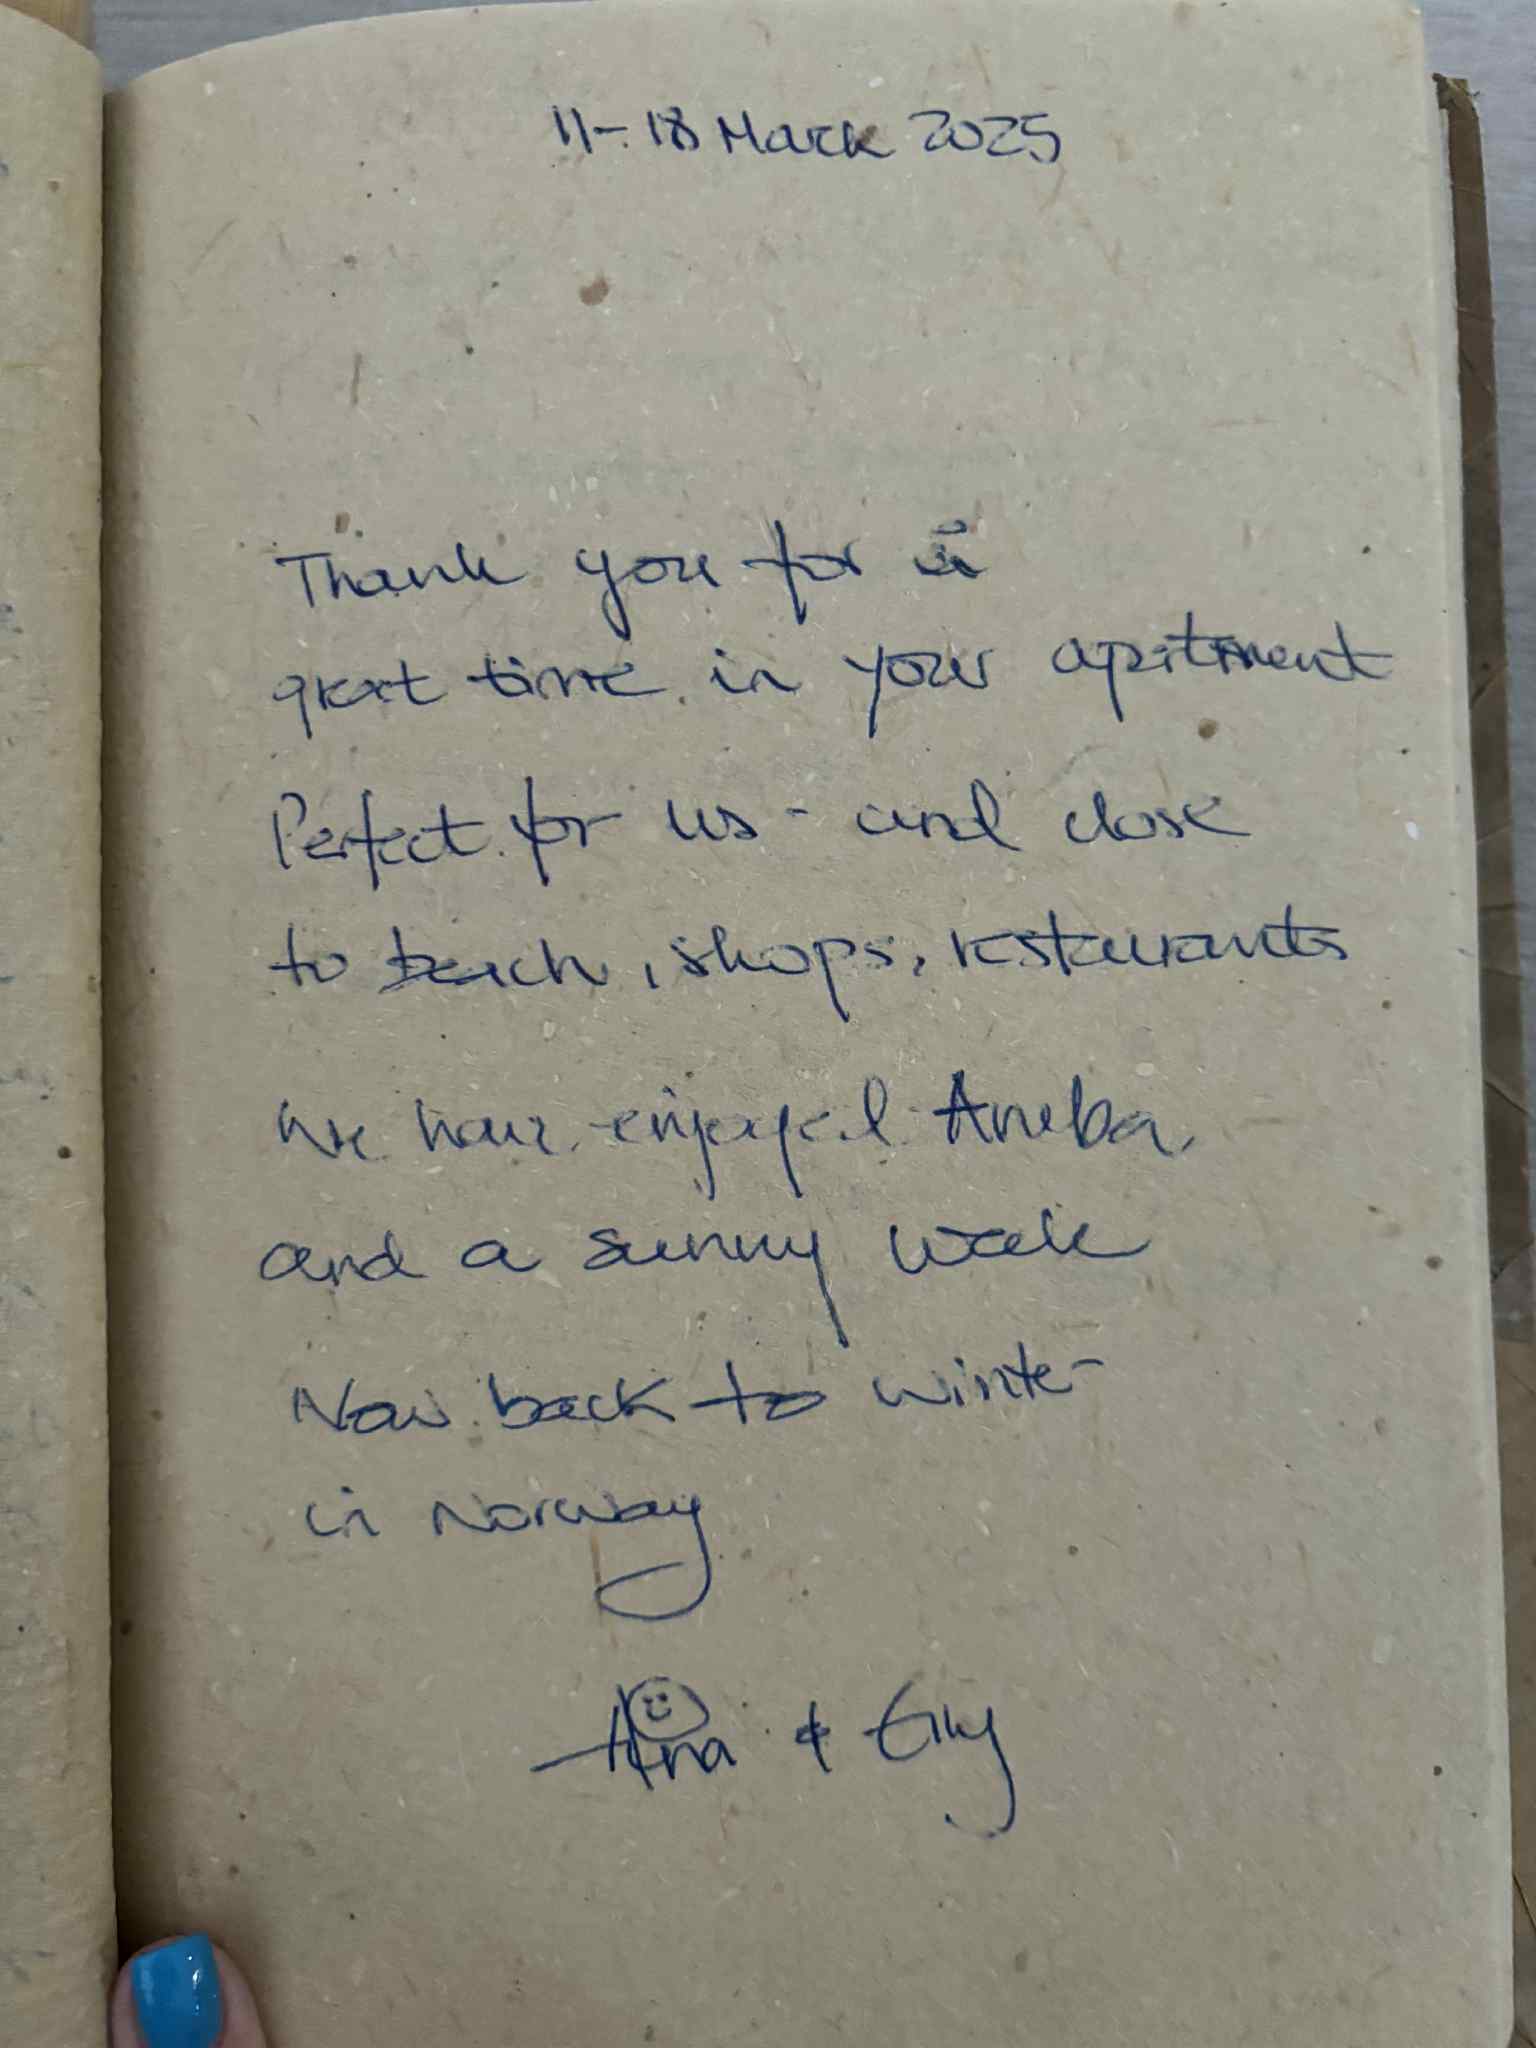 11-18 March 2025
Thank you for a
great time in your apartment
Perfect for us - and close
to beach, shops, restaurants
We have enjoyed Aruba
and a sunny week
Now back to winter
in Norway
&